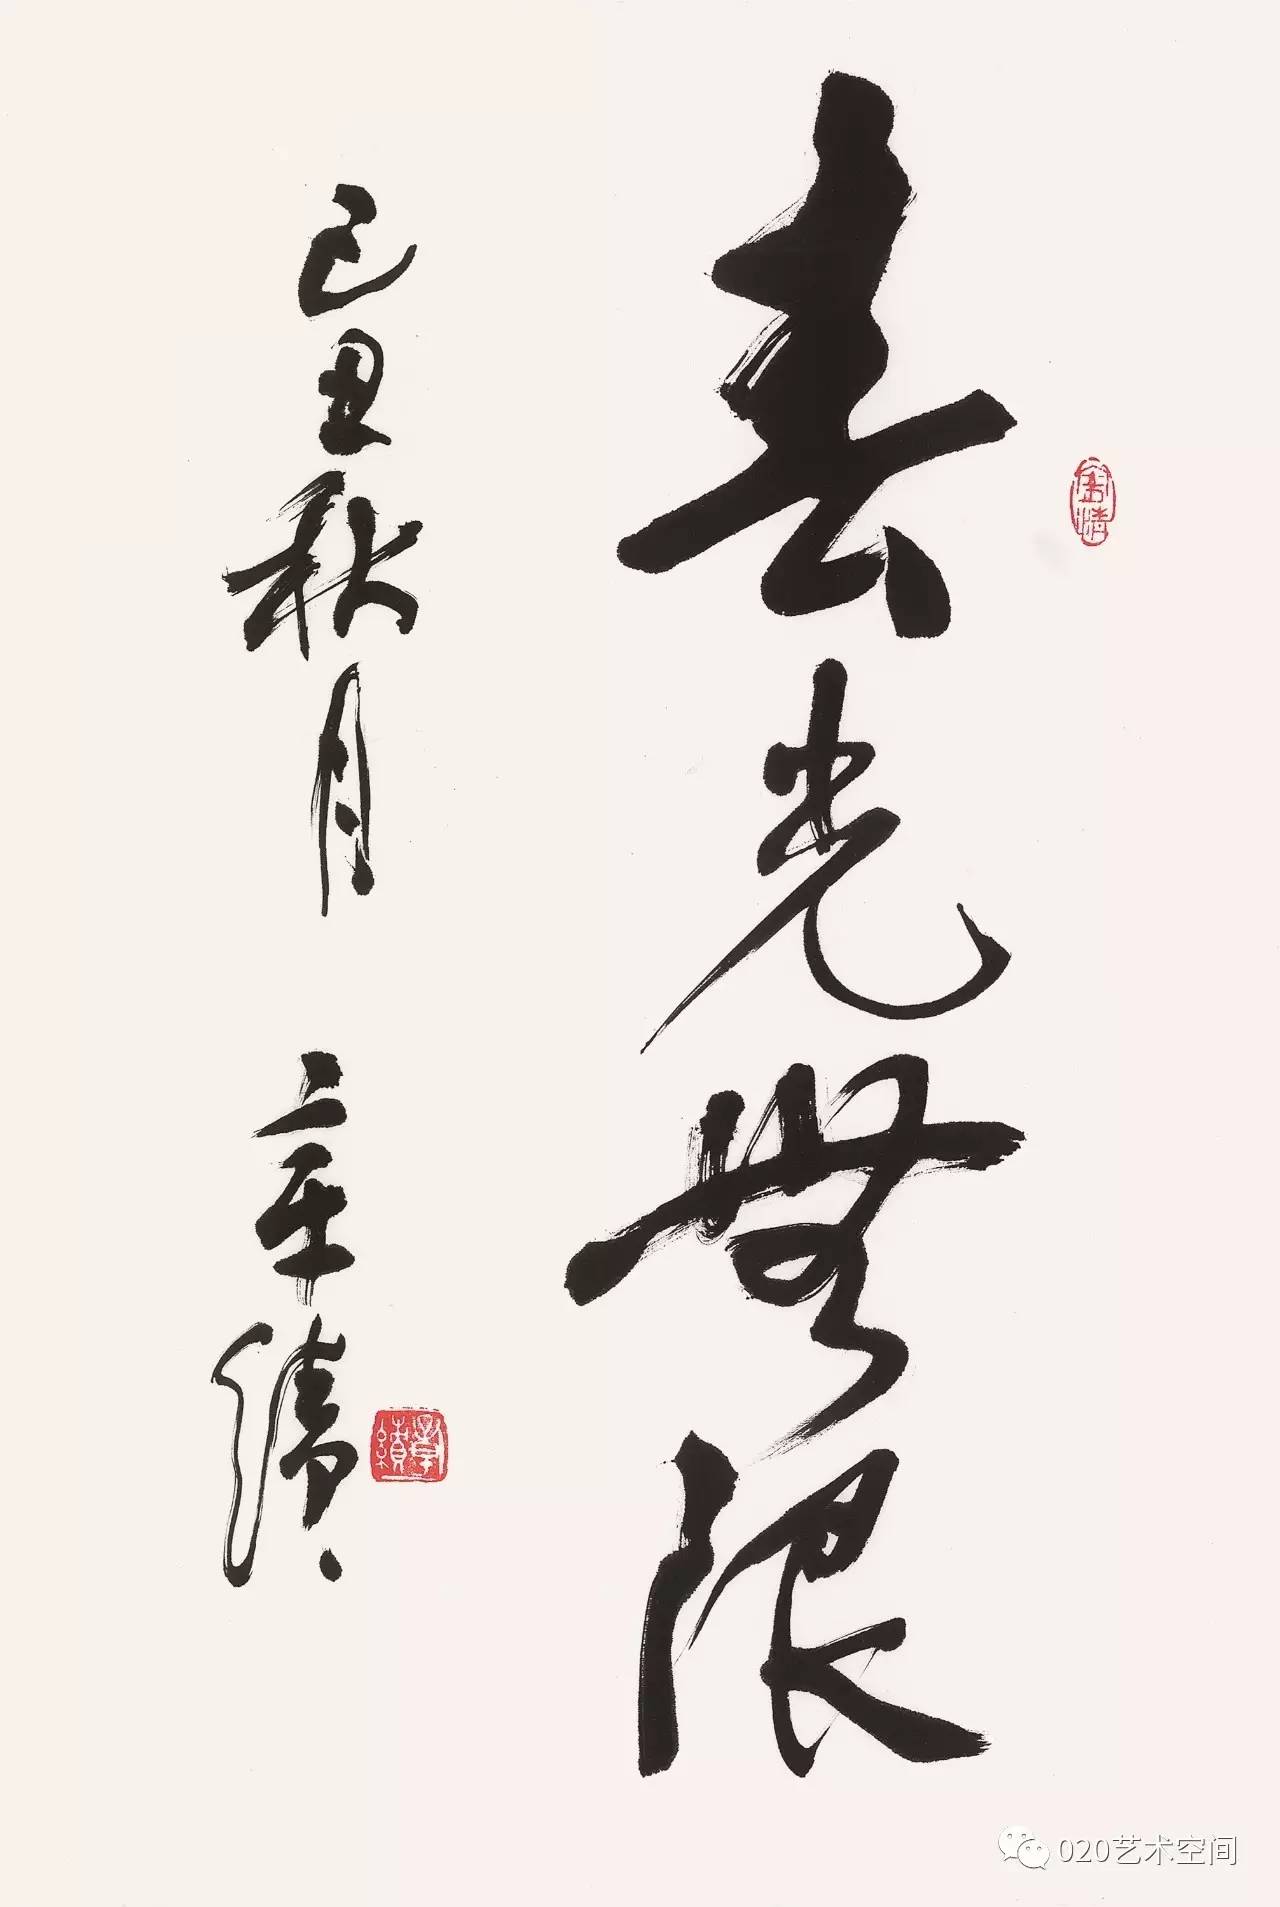 春光無限
己丑秋月
020艺术空间